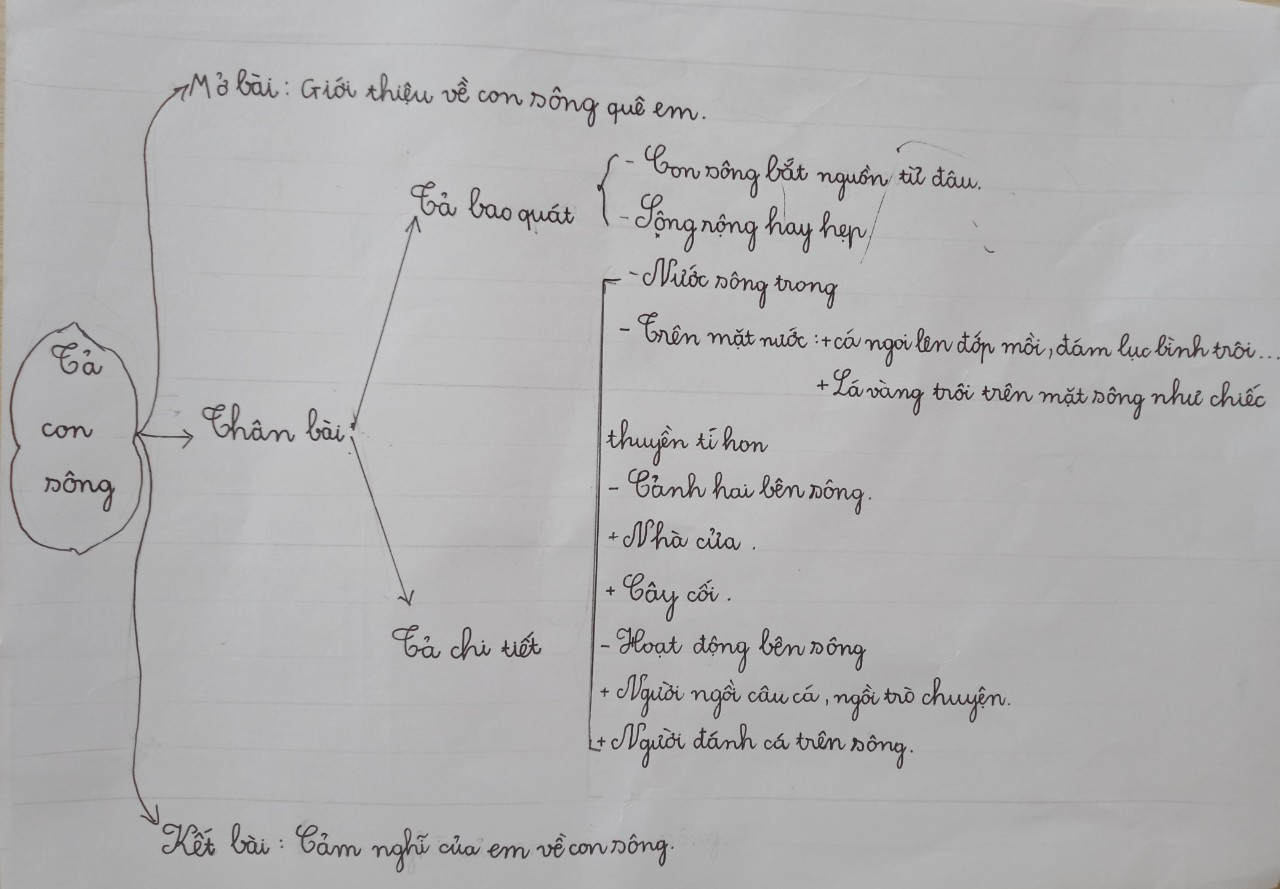 Mở bài: Giới thiệu về con sông quê em.
Tả bao quát
- Con sông bắt nguồn từ đâu.
- Sông rộng hay hẹp
Tả
con
sông
Thân bài:
- Nước sông trong
- Trên mặt nước: + cá ngoi lên đớp mồi, đám lục bình trôi...
+ Lá vàng trôi trên mặt sông như chiếc
thuyền tí hon
- Cảnh hai bên sông.
+ Nhà cửa.
+ Cây cối.
Tả chi tiết
- Hoạt động bên sông
+ Người ngồi câu cá, ngồi trò chuyện.
+ Người đánh cá trên sông.
Kết bài: Cảm nghĩ của em về con sông.